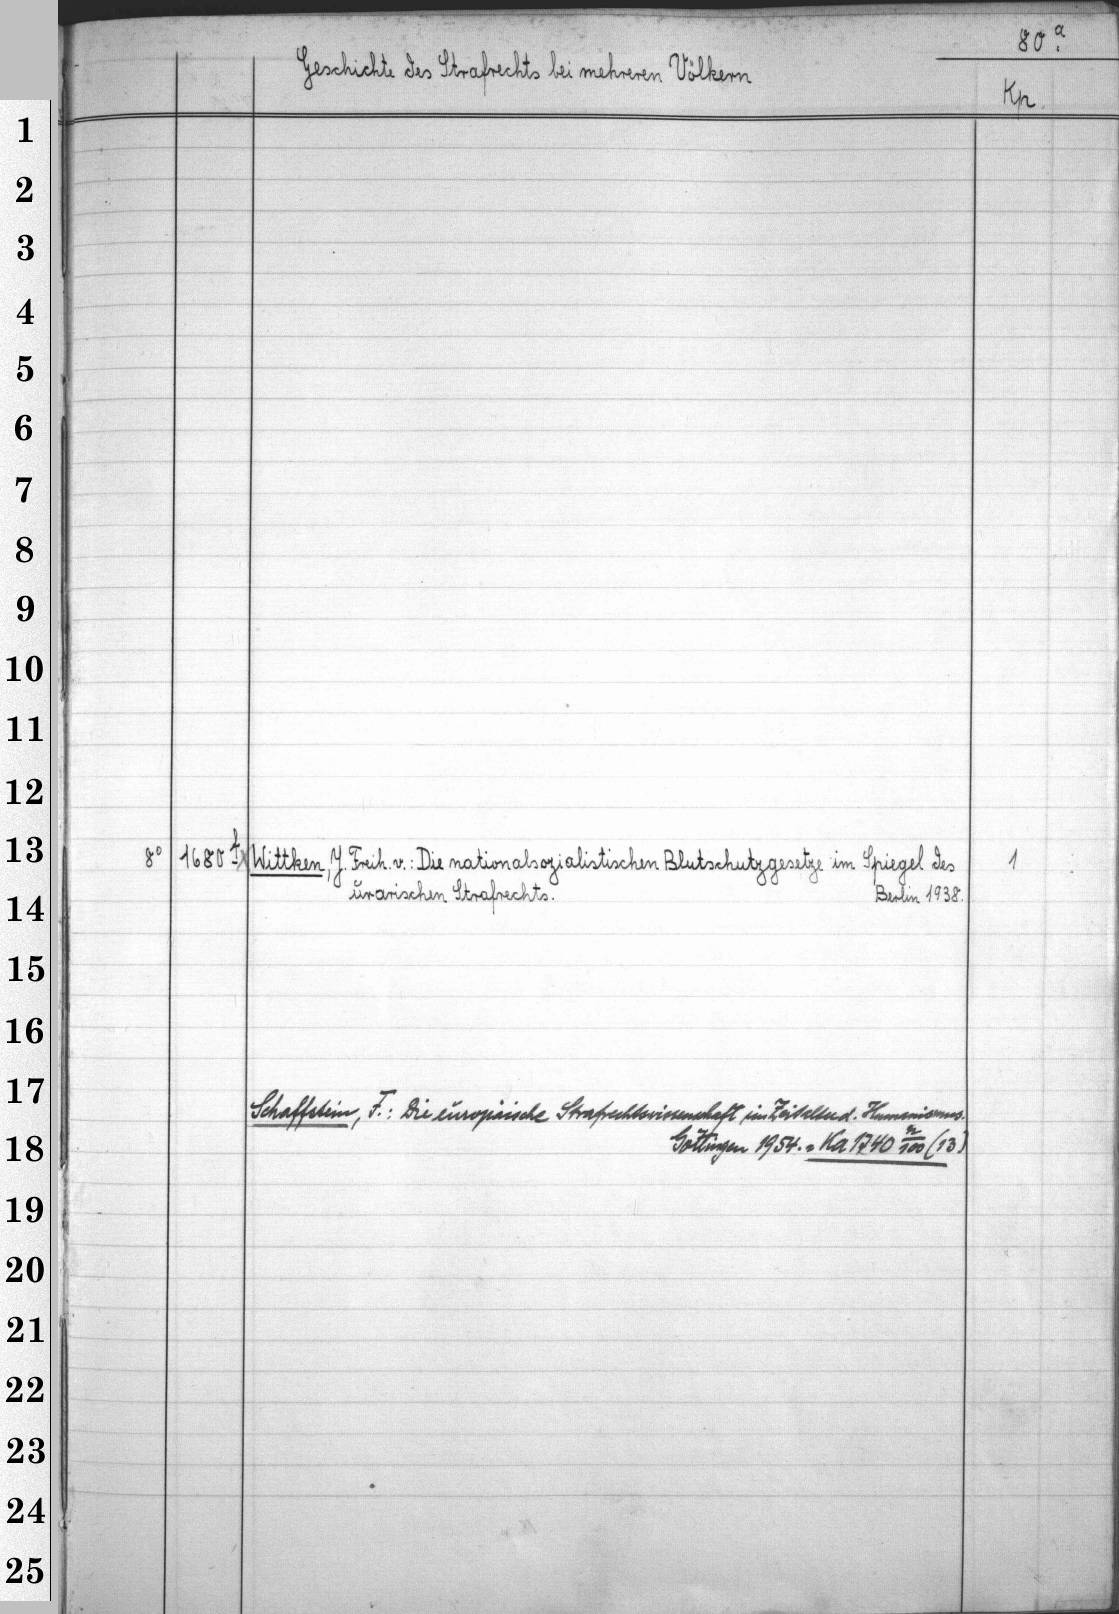 80ª.
Geschichte des Strafrechts bei mehreren Völkern
Kp.
1
2
3
4
5
6
7
8
9
10
11
12
13
8° 1680 f x Wittken, J. Freih. v.: Die nationalsozialistischen Blutschutzgesetze im Spiegel des 1
urarischen Strafrechts. Berlin 1938.
14
15
16
17
Schaffstein, F.: Die europäische Strafrechtswissenschaft im Zeitalter d. Humanismus.
Göttingen 1954. = Ka 1740 n/100 (13)
18
19
20
21
22
23
24
25